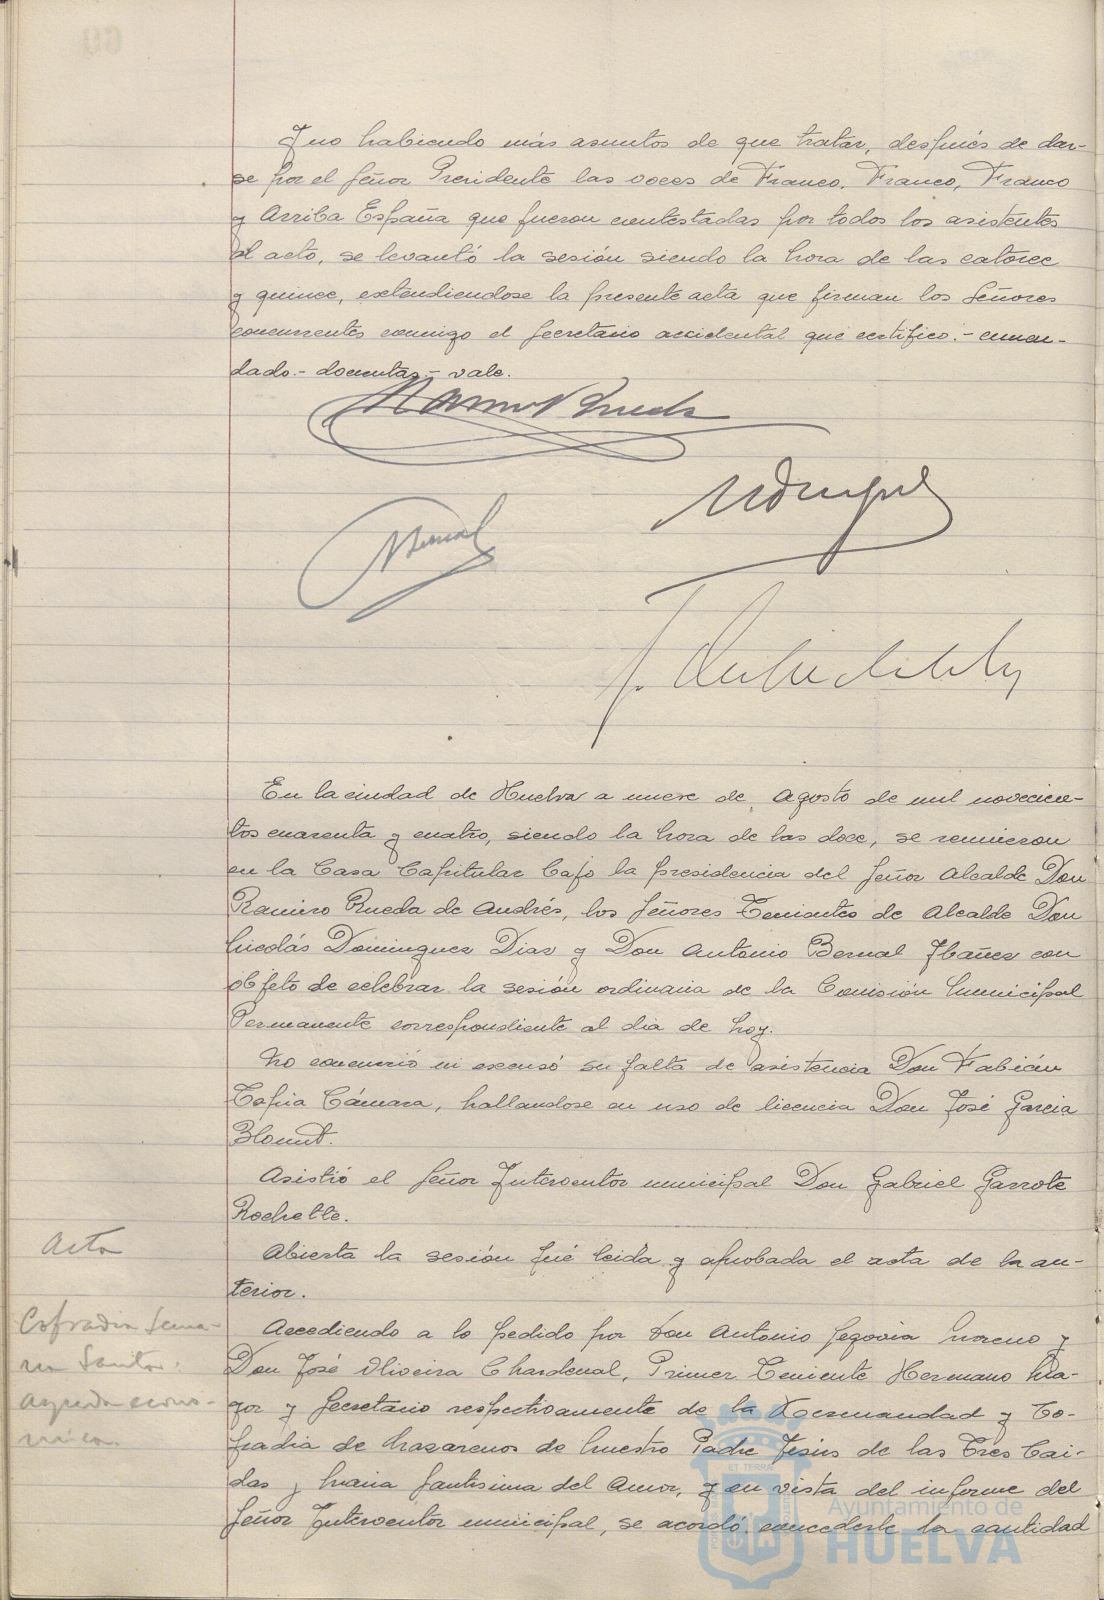 Y no habiendo más asuntos de que tratar, después de dar-
se por el Señor Presidente las voces de Franco, Franco, Franco
y Arriba España que fueron contestadas por todos los asistentes
al acto, se levantó la sesión siendo la hora de las catorce
y quince, extendiendose la presente acta que firman los Señores
concurrentes conmigo el Secretario accidental que certifico.- enmen-
dado.- docentas.- vale.
En la ciudad de Huelva a nueve de agosto de mil novecien-
tos cuarenta y cuatro, siendo la hora de las doce, se reunieron
en la Casa Capitular bajo la presidencia del Señor Alcalde Don
Ramiro Rueda de Andrés, los Señores Tenientes de Alcalde Don
Nicolás Dominguez Diaz y Don Antonio Bernal Ibañez con
objeto de celebrar la sesión ordinaria de la Comisión Municipal
Permanente correspondiente al dia de hoy.
No concurrió ni excusó su falta de asistencia Don Fabián
Tapia Cámara, hallandose en uso de licencia Don José Garcia
Blount.
Asistió el Señor Interventor municipal Don Gabriel Garrote
Rochette.
Acta
Abierta la sesión fué leida y aprobada el acta de la an-
terior.
Cofradia Sema-
na Santa.
ayuda econo-
mica.
Accediendo a lo pedido por Don Antonio Segovia Moreno y
Don José Oliveira Chardenal, Primer Teniente Hermano Ma-
yor y Secretario respectivamente de la Hermandad y Co-
fradia de Nazarenos de Nuestro Padre Jesús de las Tres Cai-
das y Maria Santisima del Amor, y en vista del informe del
Señor Interventor municipal, se acordó concederle la cantidad
Ayuntamiento de
HUELVA